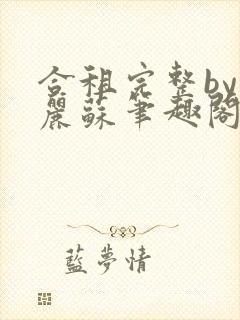 合租完整by
麗蘇筆趣閣
藍夢情